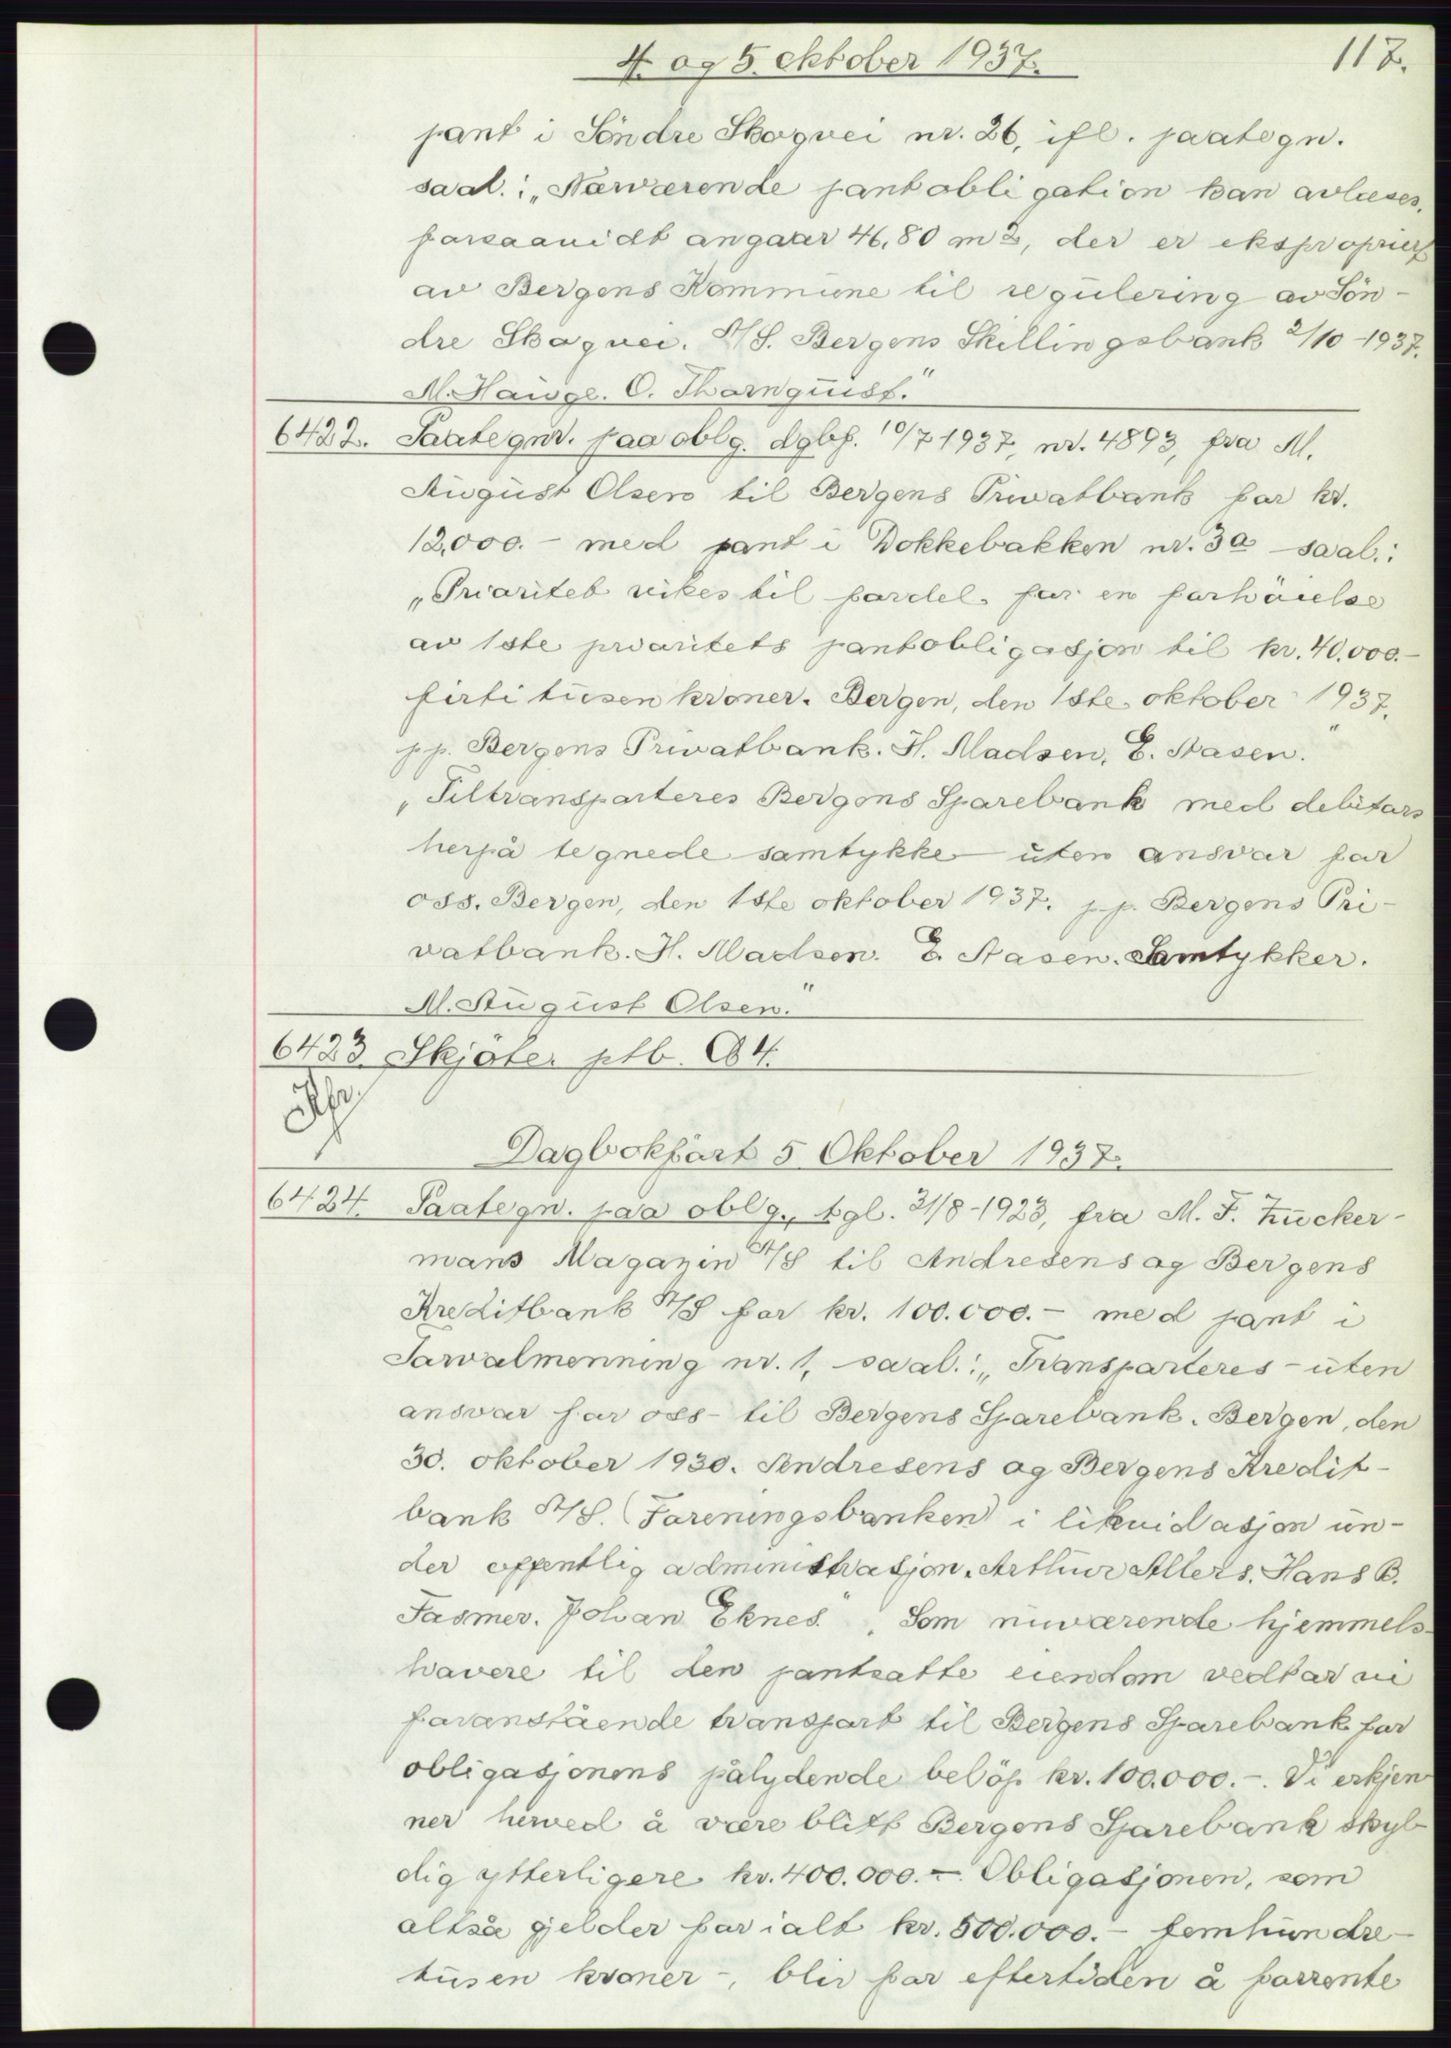 4. og 5. oktober 1937.
117.
pant i Söndre Skogvei nr. 26, ifl. paategn.
saal.: „Nærværende pantobligation kan avlæses,
forsaavidt angaar 46,80 m2, der er ekspropriert
av Bergens Kommune til regulering av Sön-
dre Skogvei. A/S. Bergens Skillingsbank 2/10-1937.
M. Hauge. O. Thornquist."
6422. Paategn. paa oblg. dgbf. 10/7 1937, nr. 4893, fra M.
August Olsen til Bergens Privatbank for kr.
12,000.- med pant i Dokkebakken nr. 3a saal.:
„Prioritet vikes til fordel for en forhöielse
av 1ste prioritets pantobligasjon til kr. 40.000.-
firti tusen kroner. Bergen, den 1ste oktober 1937.
pp. Bergens Privatbank. H. Madsen. E. Aasen."
„Tiltransporteres Bergens Sparebank med debitors
herpå tegnede samtykke uten ansvar for
oss. Bergen, den 1ste oktober 1937. p.p. Bergens Pri-
vatbank. H. Madsen. E. Aasen. Samtykker.
M. August Olsen."
6423. Skjöte. ptb. B4.
Dagbokfört 5. Oktober 1937.
6424. Paategn. paa oblg., tgl. 31/8-1923, fra M. F. Zucker-
mans Magazin A/S til Andresens og Bergens
Kreditbank A/S for kr. 100.000.- med pant i
Torvalmenning nr. 1, saal.: „Transporteres - uten
ansvar for oss - til Bergens Sparebank. Bergen, den
30. oktober 1930. Andresens og Bergens Kredit-
bank A/S. (Foreningsbanken) i likvidasjon un-
der offentlig administrasjon. Arthur Allers. Hans B.
Fasmer. Johan Eknes." „Som nuværende hjemmels-
havere til den pantsatte eiendom vedtar vi
foranstående transport til Bergens Sparebank for
obligasjonens pålydende belöp kr. 100.000.-. Vi erkjen
ner herved å være blitt Bergens Sparebank skyl-
dig ytterligere kr. 400.000.-. Obligasjonen, som
altså gjelder for ialt kr. 500.000.- femhundre-
tusen kroner -, blir for eftertiden å forrente